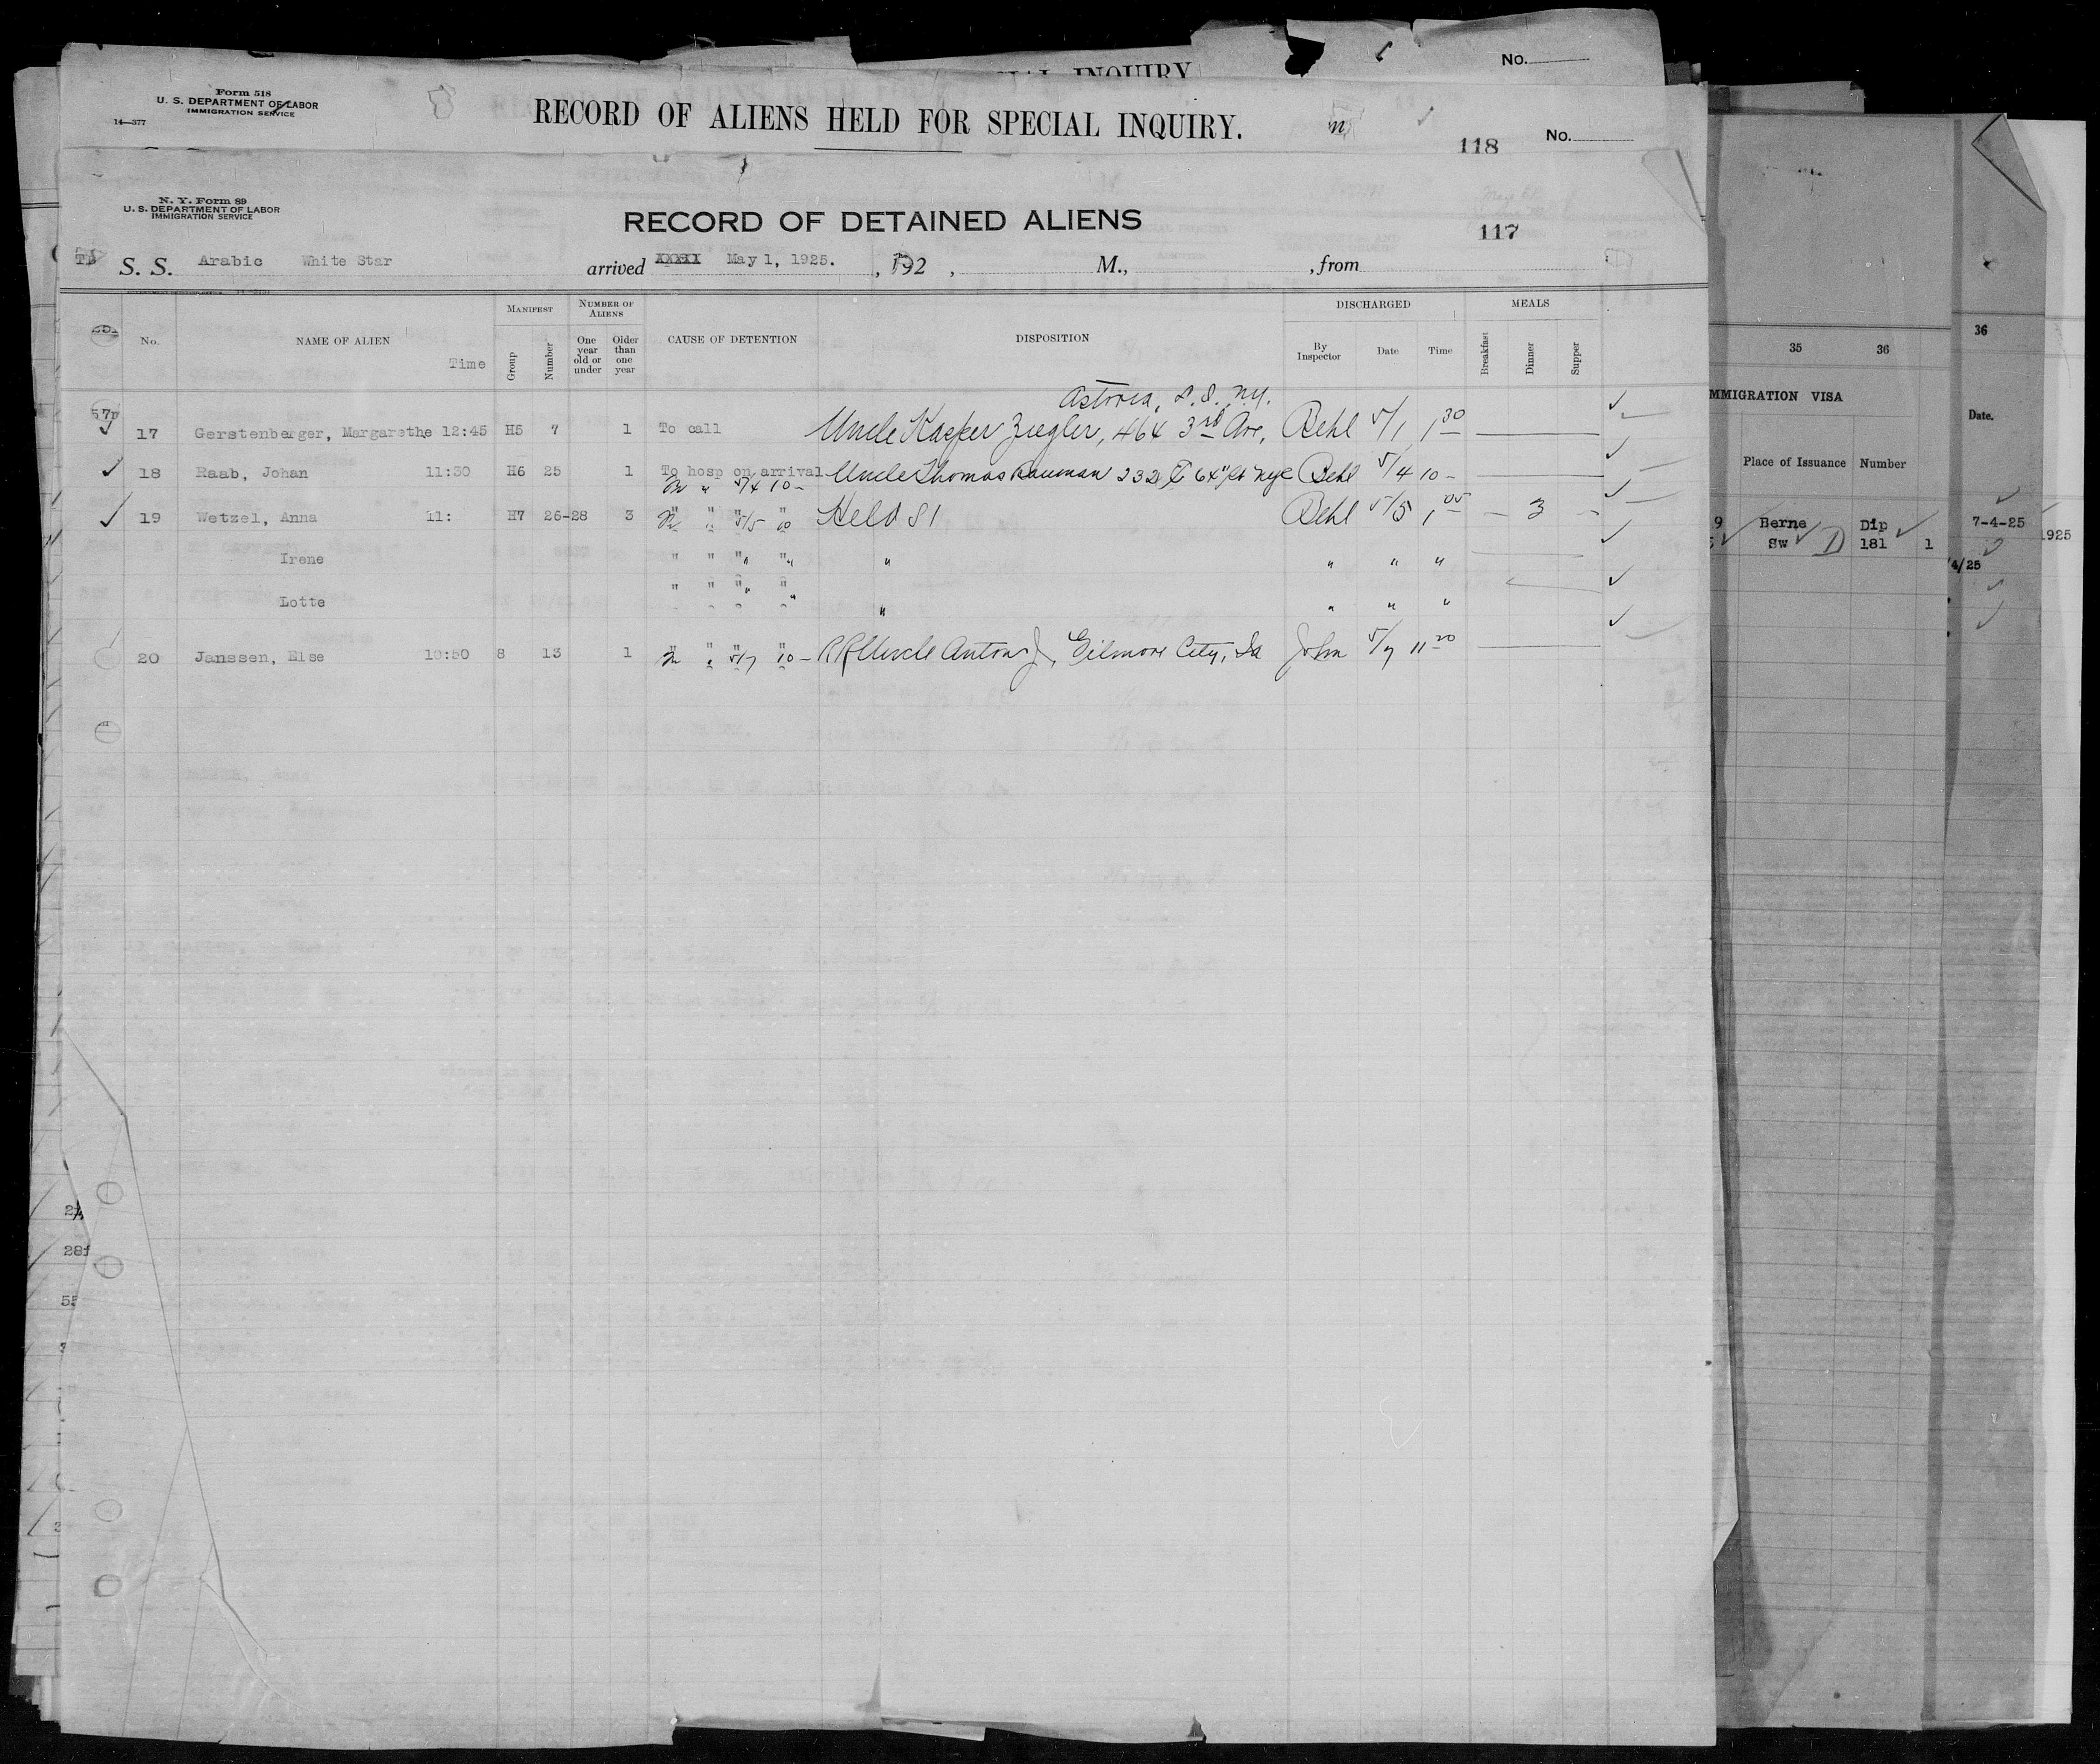 INQUIRY
No.
Form 518
U. S. DEPARTMENT OF LABOR
IMMIGRATION SERVICE
14—377
RECORD OF ALIENS HELD FOR SPECIAL INQUIRY.
118
No.
N. Y. Form 89
U. S. DEPARTMENT OF LABOR
IMMIGRATION SERVICE
RECORD OF DETAINED ALIENS
117
S. S. Arabic White Star arrived XXXXX May 1, 1925. , 192 , M., , from
No.
NAME OF ALIEN
Time
MANIFEST
Group
Number
NUMBER OF ALIENS
One year old or under
Older than one year
CAUSE OF DETENTION
DISPOSITION
DISCHARGED
By Inspector
Date
Time
MEALS
Breakfast
Dinner
Supper
Astoria, N.Y.
17 Gerstenberger, Margarethe 12:45 H5 7 1 To call Uncle Kasper Ziegler, 464 3rd Ave, Behl 5/1 1 30
18 Raab, Johan 11:30 H6 25 1 To hosp on arrival Uncle Thomas Bauman 232 E 64" St nyc Behl 5/4 10 -
" 5/4 10 -
19 Wetzel, Anna 11: H7 26-28 3 " " 5/5 10 Held SI Behl 5/5 1 05 - 3 -
Irene " " " " " " " "
Lotte " " " " " " " "
20 Janssen, Else 10:50 8 13 1 " " 5/7 10 - RR Uncle Anton J, Gilmore City, Ia John 5/7 11 20
28
55
35
36
IMMIGRATION VISA
Place of Issuance
Number
9 Berne Dip
Sw D 181 1
36
Date.
7-4-25
1925
/4/25